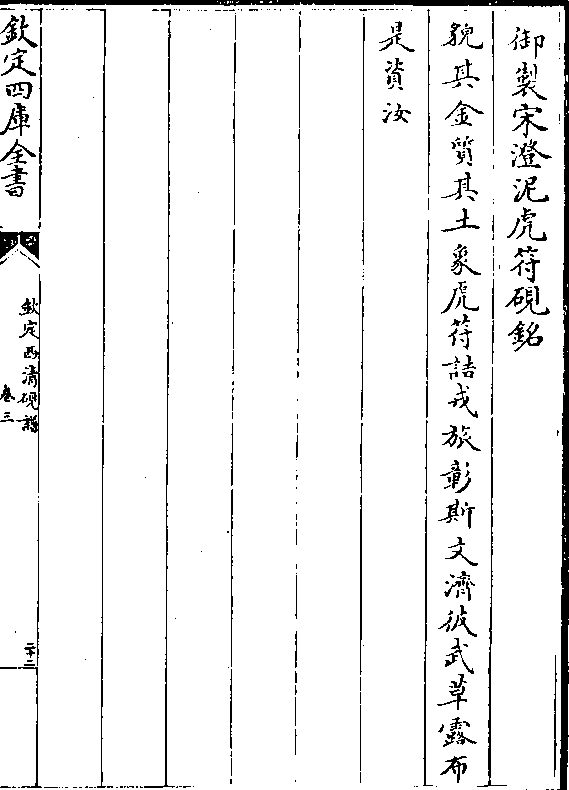 御製宋澄泥虎符硯銘
貌其金質其土象虎符詰戎旅彰斯文濟彼武草露布
是資汝
欽定四庫全書
欽定西清硯譜
卷三
二十三